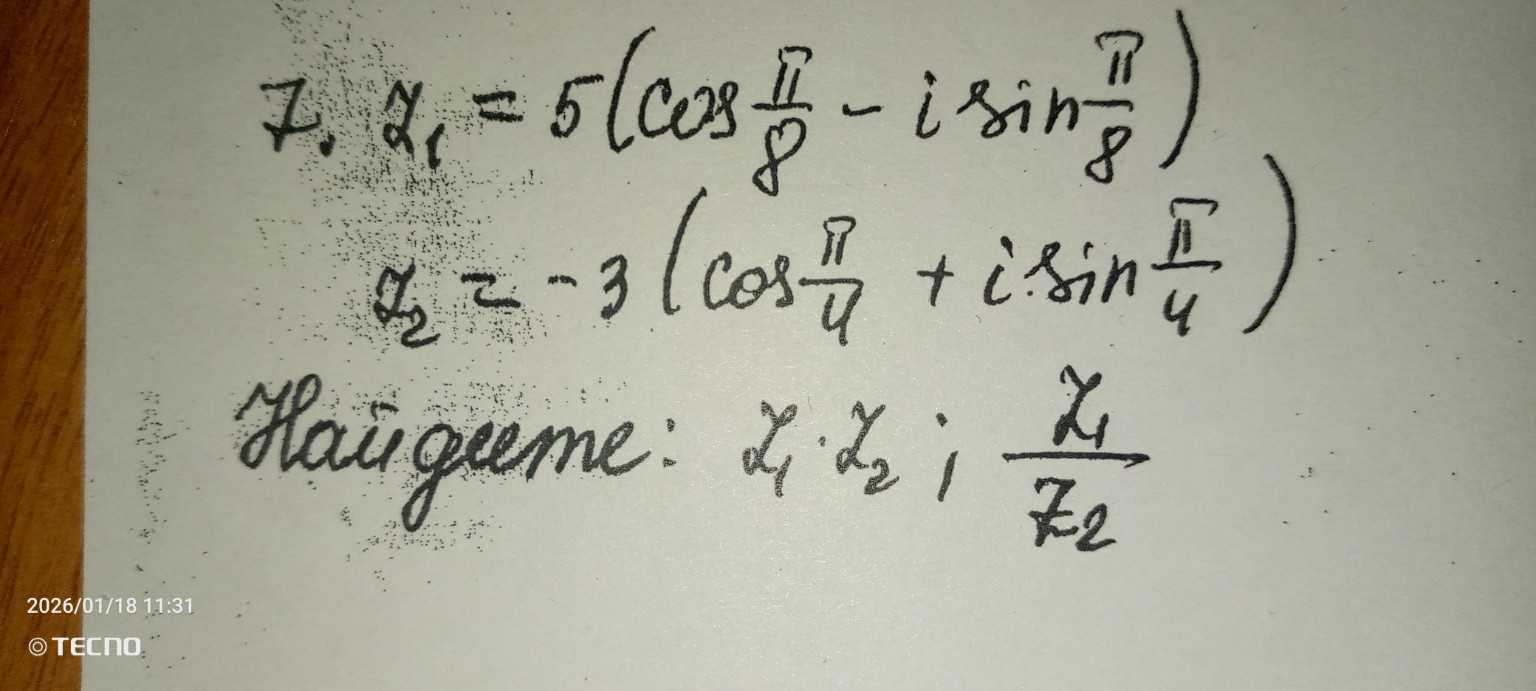 7. z₁ = 5(cos π/8 - i sin π/8)
z₂ = -3(cos π/4 + i·sin π/4)
Найдите: z₁·z₂; z₁/z₂
2026/01/18 11:31
TECNO